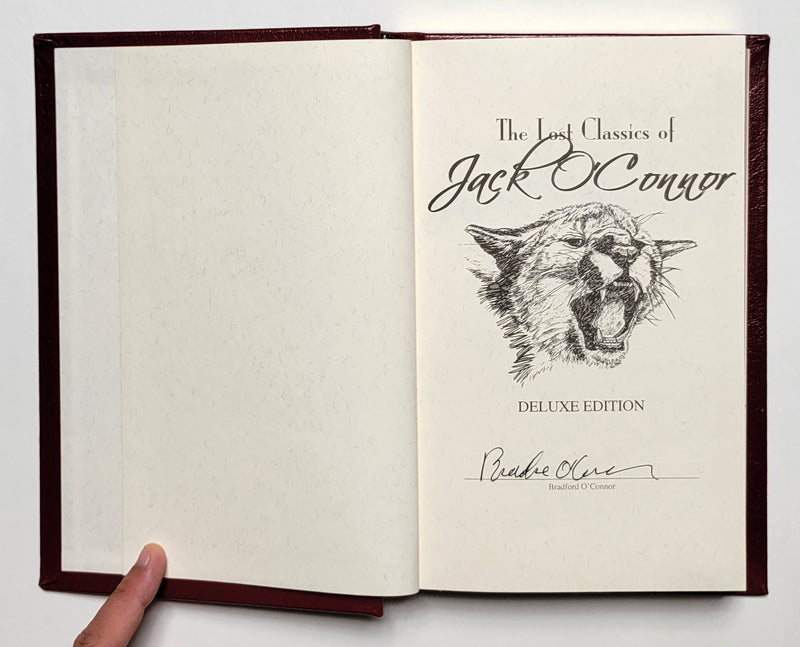 The Lost Classics of
Jack O'Connor
DELUXE EDITION
Bradford O'Connor